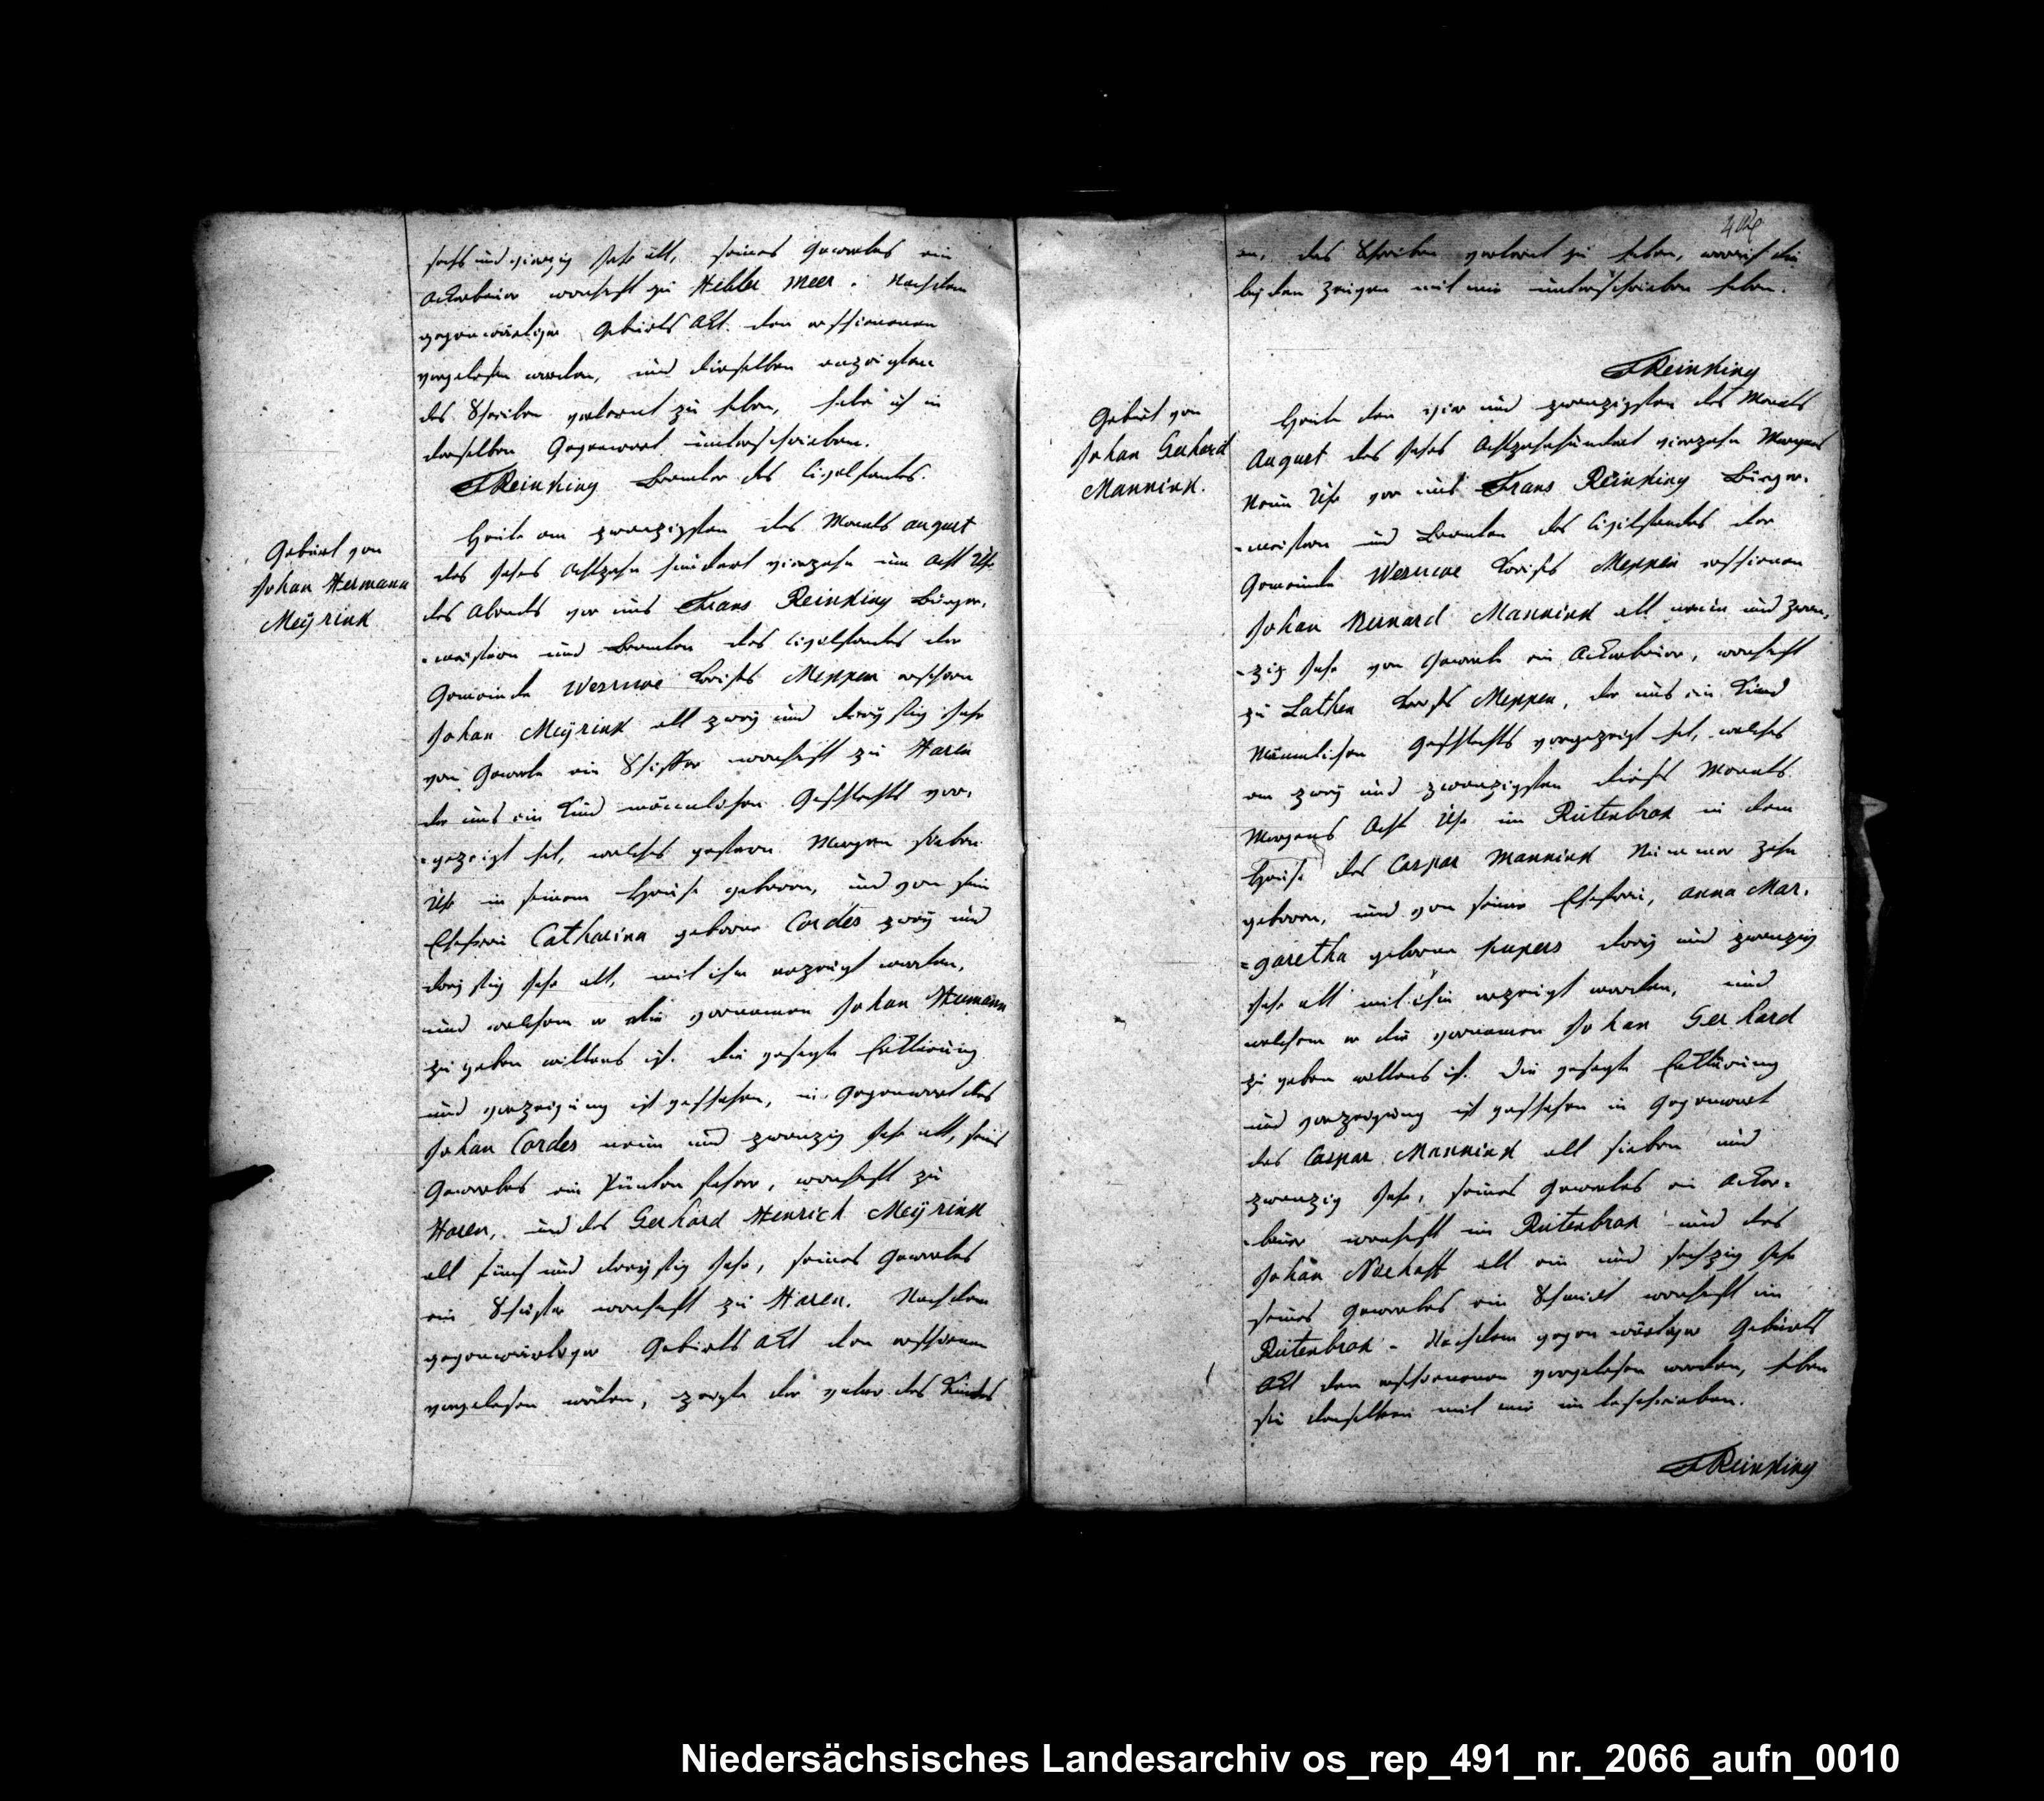 sechs und vierzig Jahr alt, seines Gewerbes ein
Ackerbauer wonhaft zu Hebler Meer. Nachdem
gegenwärtiger Geburts Akt den erschienenen
vorgelesen worden, und dieselben anzeigten
des Schreiben verlernt zu haben, habe ich in
derselben Gegenwart unterschrieben.
FReinking Beamter des Civilstandes.
Geburt von
Johan Hermann
Meÿrink
Heute am zwanzigsten des Monats august
des Jahrs Achtzehn hundert vierzehn um Acht Uhr
des Abends vor uns Frans Reinking Bürger,
-meistern und Beamten des Civilstandes der
Gemeinde Wesuwe Kreises Meppen erschien
Johan Meÿrink alt zweÿ und dreÿstig Jahr
von Gewerbe ein Schiffer wonhaft zu Haren
der uns ein Kind männlichen Geschlechts vor,
-gezeigt hat, welches gestern Morgen sieben
Uhr in seinem Hause geboren, und von sein
Ehefrau Catharina geborne Cordes zweÿ und
dreÿstig Jahr alt, mit ihm erzeugt worden,
und welchem er die Vornamen Johan Hermann
zu geben willens ist. Die gesagte Erklärung
und Vorzeigung ist geschehen, in Gegenwart des
Johan Cordes neun und zwanzig Jahr alt, seins
Gewerbes ein Pünten fahrer, wonhaft zu
Haren, und des Gerhard Henrich Meÿrink
alt fünf und dreÿstig Jahr, seines Gewerbes
ein Schuster wonhaft zu Haren. Nachdem
gegenwärtiger Geburts Akt den erschienen
vorgelesen worden, zeigte der Vater des Kindes
an, das Schreiben verlernt zu haben, worauf die
beÿden Zeugen mit mir unterschrieben haben.
FReinking
Geburt von
Johan Gerhard
Mannink.
Heute den vier und zwanzigsten des Monats
August des Jahrs Achtzehnhundert vierzehn Morgens
Neun Uhr vor uns Frans Reinking Bürger,
-meistern und Beamten des Civilstandes der
Gemeinde Wesuwe Kreises Meppen erschienen
Johan Bernard Mannink alt neun und zwan,
-zig Jahr von Gewerbe ein Ackerbauer, wonhaft
zu Lathen Kreises Meppen, der uns ein Kind
Männlichen Geschlechts vorgezeigt hat, welches
am zweÿ und zwanzigsten dieses Monats
Morgens Acht Uhr im Rütenbrok in dem
Hause des Caspar Mannink Nummer zehn
geboren, und von seiner Ehefrau, anna Mar,
=garetha geborne pupers dreÿ und zwanzig
Jahr alt mit ihm erzeugt worden, und
welchem er die Vornamen Johan Gerhard
zu geben willens ist. Die gesagte Erklärung
und Vorzeigung ist geschehen in Gegenwart
des Caspar Mannink alt sieben und
zwanzig Jahr, seines Gewerbes ein Acker,
-bauer wonhaft im Rütenbrok und des
Johan alt ein und sechzig Jahr
seines Gewerbes ein Schmidt wonhaft im
Rütenbrok. Nachdem gegenwärtiger Geburts
Akt den erschienenen vorgelesen worden, haben
sie denselben mit mir unterschrieben.
FReinking
Niedersächsisches Landesarchiv os_rep_491_nr._2066_aufn_0010